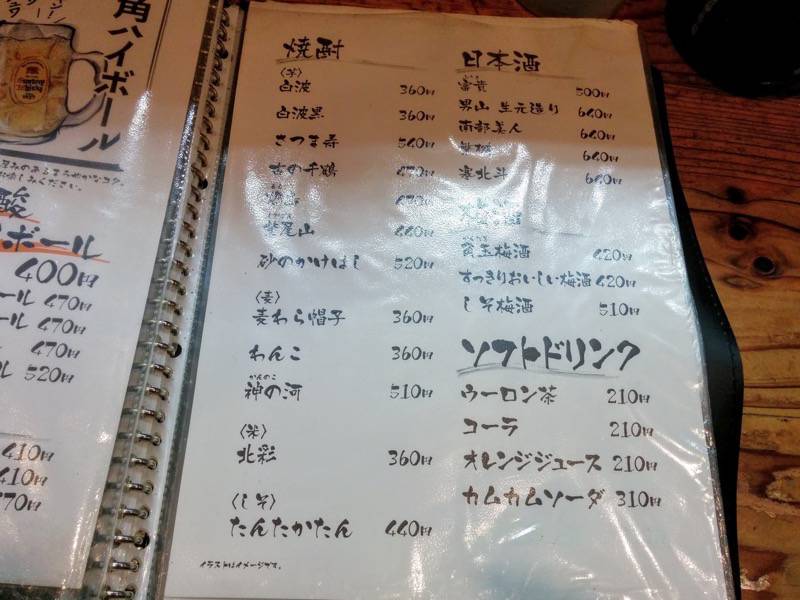 角ハイボール
酸
ボール
400円
ール 470円
ール 470円
470円
ル 520円
410円
410円
焼酎
〈芋〉
白波 360円
白波黒 360円
さつま寿 540円
古の千鶴 470円
470円
鷲尾山 440円
砂のかけはし 520円
〈麦〉
麦わら帽子 360円
わんこ 360円
かんのこ
神の河 510円
〈米〉
北彩 360円
〈しそ〉
たんたかたん 440円
イラストはイメージです。
日本酒
富貴 500円
男山 生元造り 640円
南部美人 640円
640円
塞北斗 640円
貢玉梅酒 420円
すっきりおいしい梅酒 420円
しそ梅酒 510円
ソフトドリンク
ウーロン茶 210円
コーラ 210円
オレンジジュース 210円
カムカムソーダ 310円